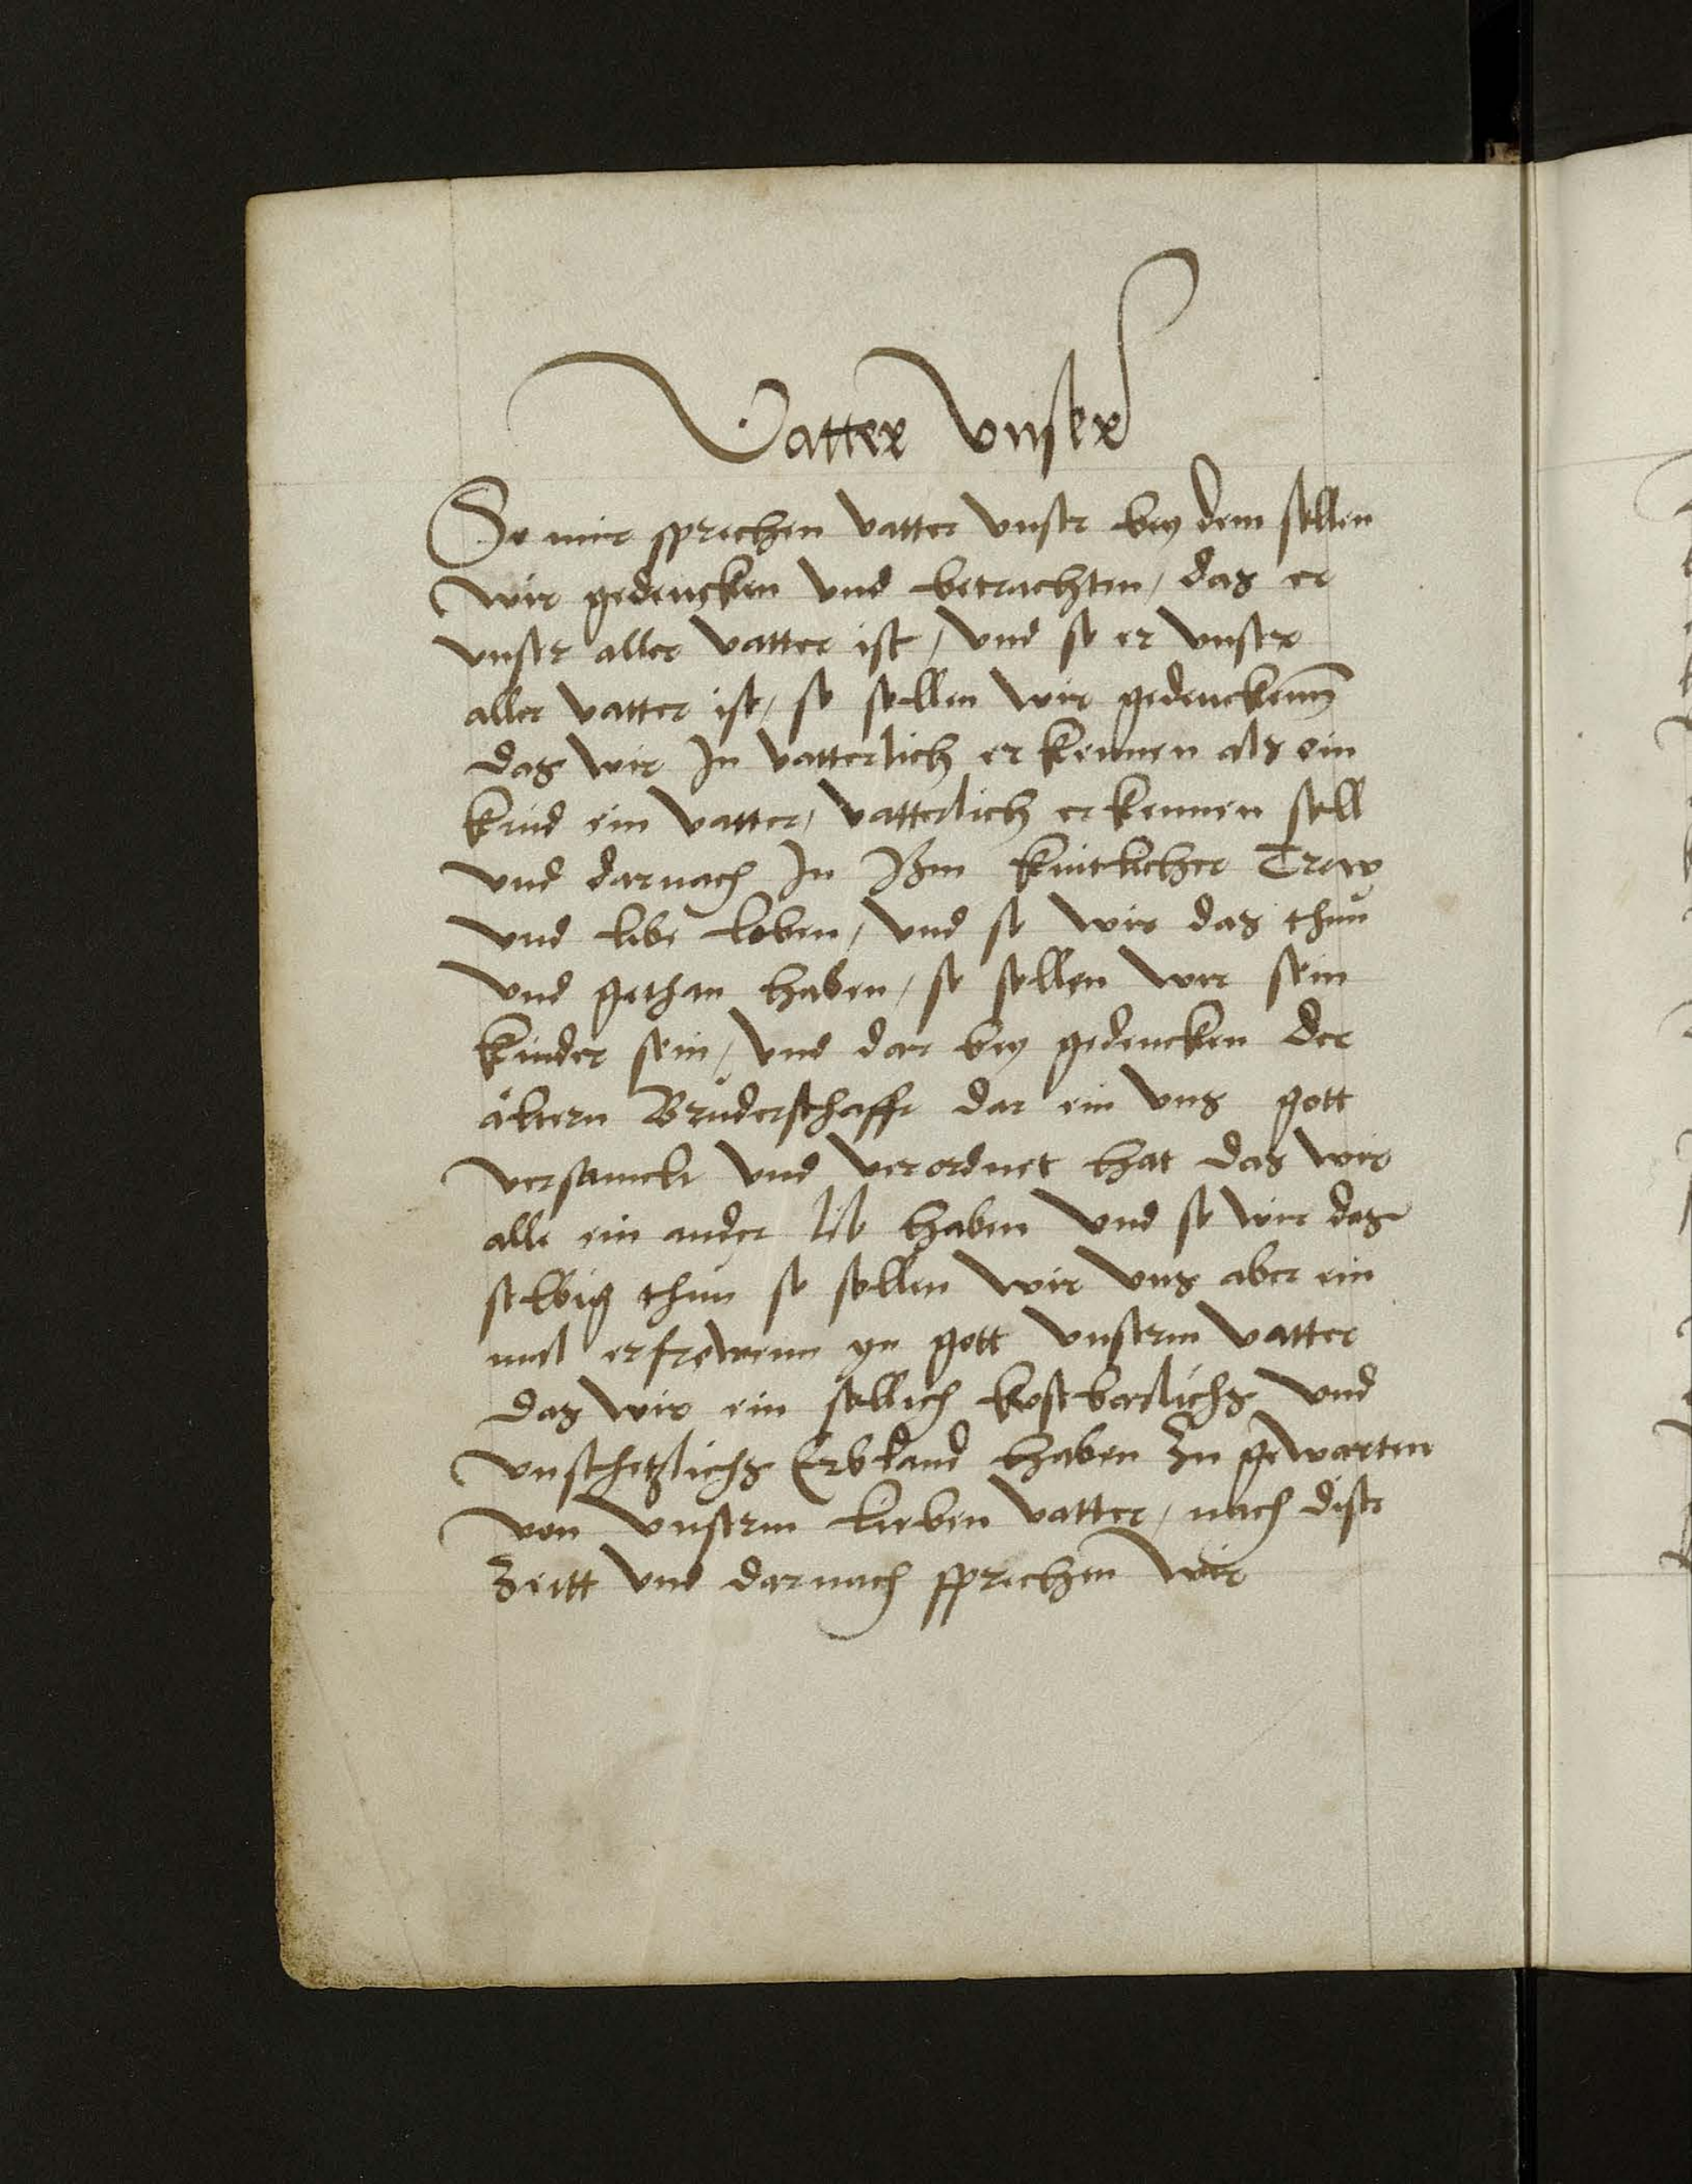 Vatter Vnser
So mir sprechen vatter vnser bey dem sollen
wir gedencken vnd betrachten, das er
vnser aller vatter ist, vnd so er vnser
aller vatter ist, so sollen wir gedenckenn
das wir In vatterlich erkennen als ein
kind ein vatter, vatterlich erkennen soll
vnd darnach In Ihm kintlicher Trew
vnd libe leben, vnd so wir das thun
vnd gethan haben, so sollen wir sein
kinder sein, vnd dar bey gedencken der
Bruderschafft dar ein vns gott
versamelt vnd verordnet hat das wir
alle ein ander lib haben vnd so wir das
selbig thun so sollen wir vns aber ein
mal erfrewenn yn gott vnserm vatter
das wir ein sollich kostbarlichs vnd
vnschetzlichs Erbland haben Zu gewarten
von vnserm lieben vatter, nach diser
Zeitt vnd darnach sprechen wir